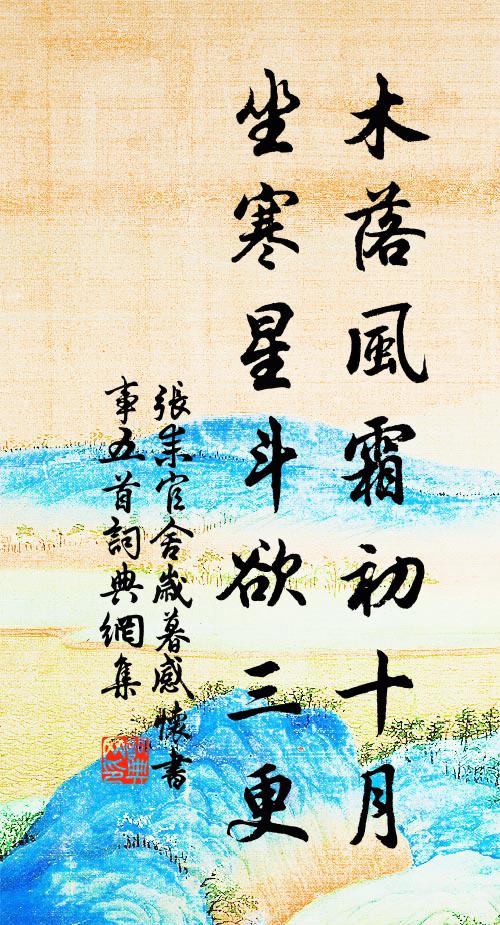 木落風霜初十月
坐寒星斗欲三更
張耒官舍歲暮感懷書
事五首詞典網集